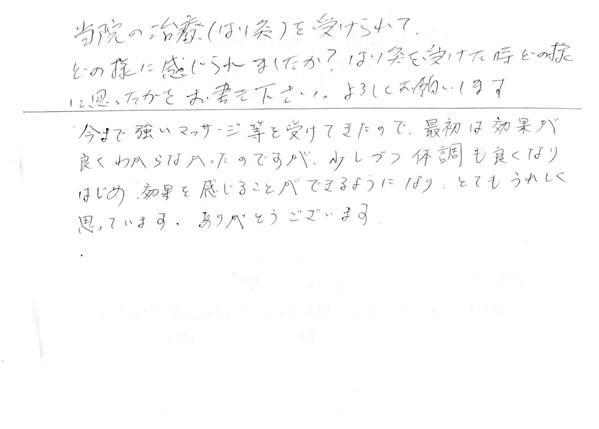 当院の治療(はり灸)を受けられて、
どの様に感じられましたか?はり灸を受けた時どの様
に思ったかをお書き下さい。よろしくお願いします
今まで強いマッサージ等を受けてきたので、最初は効果が
良くわからなかったのですが、少しづつ体調も良くなり
はじめ、効果を感じることができるようになり、とてもうれしく
思っています。ありがとうございます。